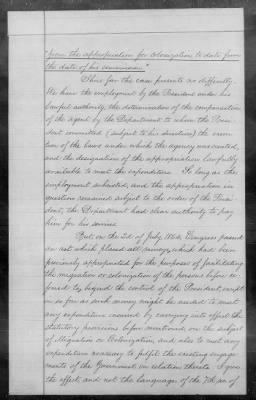 "from the appropriation for colonization to date from
the date of his commission."
Thus far the case presents no difficulty.
We have the employment by the President under his
lawful authority, the determination of the compensation
of the agent by the Department to whom the Presi-
dent committed (subject to his direction) the execu-
tion of the laws under which the agency was created,
and the designation of the appropriation lawfully
available to meet the expenditure. So long as the
employment subsisted, and the appropriation in
question remained subject to the order of the Presi-
dent, the Department had clear authority to pay
him for his service.
But, on the 2d of July 1864, Congress passed
an act which placed all moneys, which had been
previously appropriated for the purpose of facilitating
the migration or colonization of the persons before re-
ferred to, beyond the control of the President, except
in so far as such money might be needed to meet
any expenditure incurred by carrying into effect the
statutory provisions before mentioned on the subject
of Migration or Colonization, and also to meet any
expenditure necessary to fulfil the existing engage-
ments of the Government in relation thereto. I give
the effect, and not the language, of the 7th sec of